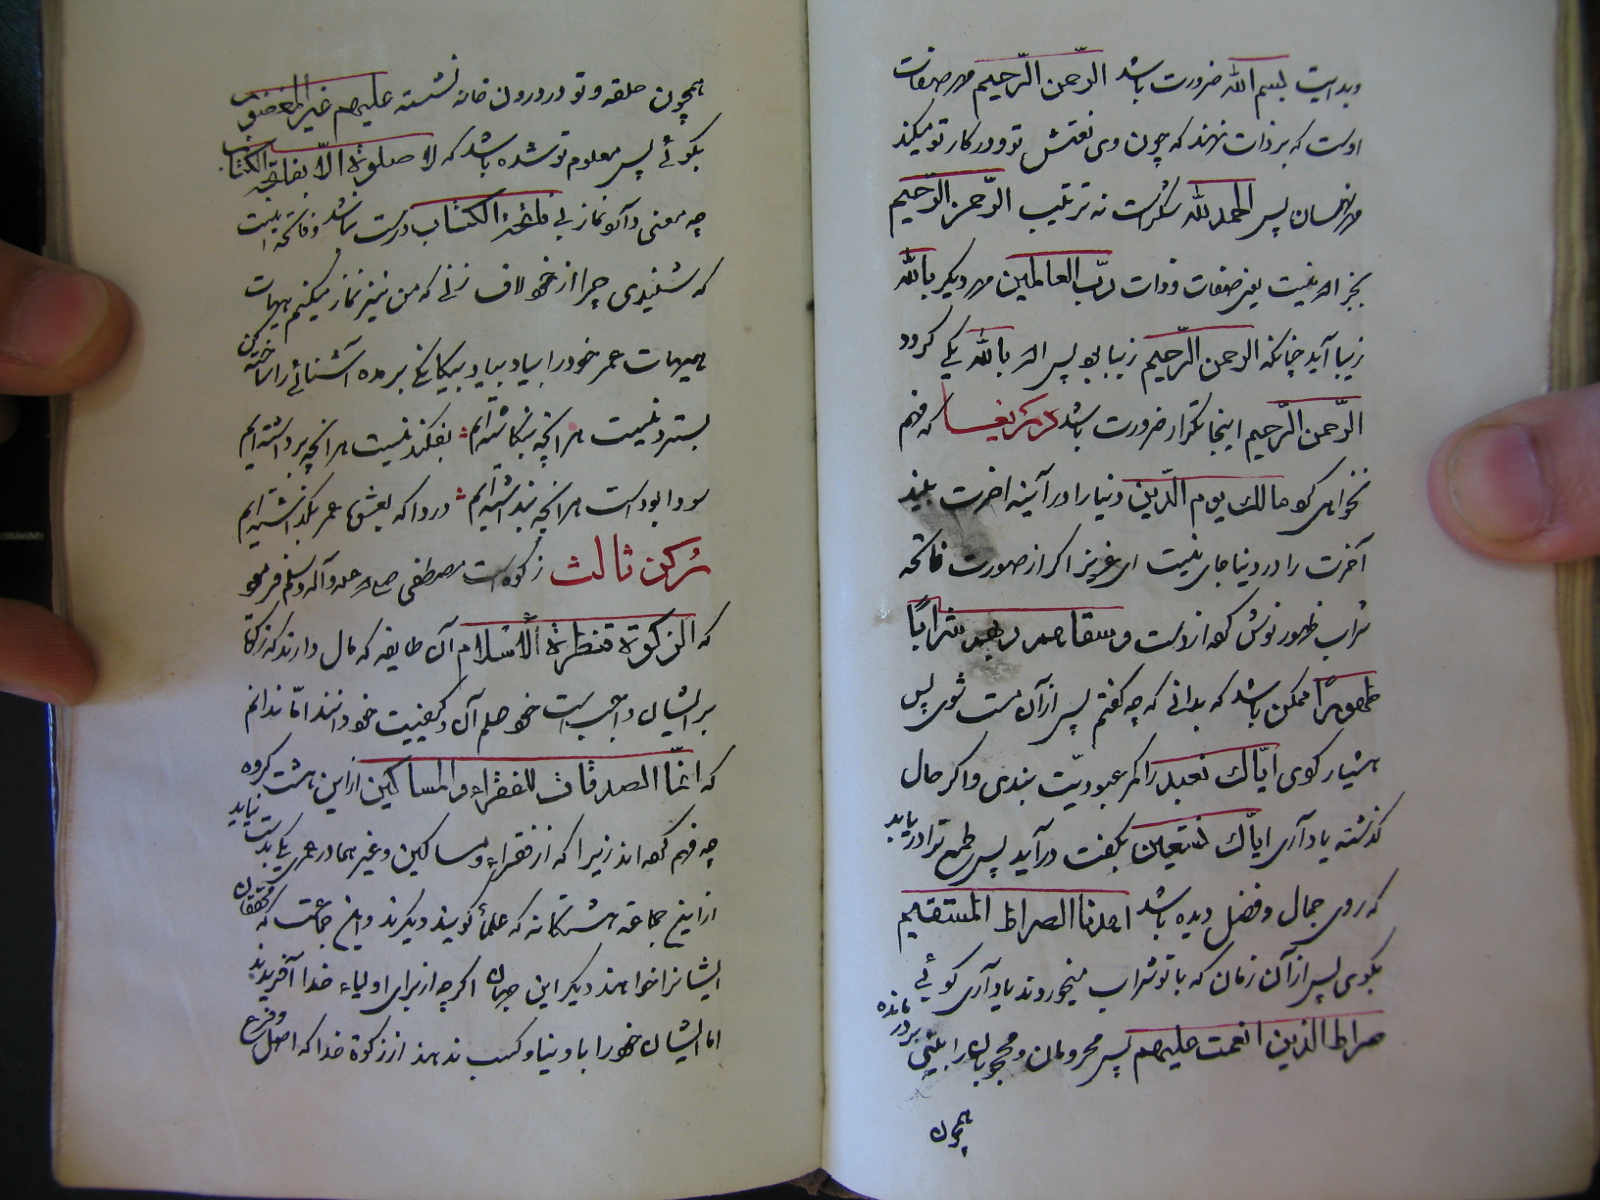 وبدایت بسم الله ضرورت باشد الرحمن الرّحیم هر صفات
اوست که بر ذات نهند که چون وی نعتش تو ودر کار تو میکند
پس الحمد لله شکرست نه ترتیب الرّحمن الرّحیم
بجز الله نیست یعنی صفات وذات ربّ العالمین هر دیکر بالله
زیبا آید چنانکه الرحمن الرّحیم زیبا بو پس الله بالله یکی کردد
الرّحمن الرّحیم اینجا تکرار ضرورت باشد که فهم
نخواهی کرد مالک یوم الدّین دنیا را در آینه اخرت بیند
آخرت را در دنیا جای نیست ای عزیز اکر از صورت فاتحه
شراب طهور نوش کرده است وسقاهم ربهم شرابًا
طهورًا ممکن باشد که بدانی که چه کفتم پس از آن مست شوی پس
هشیار کوی ایّاک نعبد را کمر عبودیّت بندی واکر حال
کذشته یاد آری ایّاک نستعین بکفت درآید پس طمع ترا دریابد
که روی جمال وفضل دیده باشد اهدنا الصراط المستقیم
بکوی پس از آن زمان که با تو شراب میخوردند یاد آری کوئی
صراط الذین انعمت علیهم پس محرومان ومحجوبان را بینی بر در مانده
همچون
همچون حلقه وتو در درون خانه نشسته علیهم غیر المغضوب
بکوئی پس معلوم تو شده باشد که لا صلوة الّا بفاتحة الکتاب
چه معنی دارد نماز بی فاتحة الکتاب درست نباشد وفاتحه اینست
که شنیدی چرا از خود لاف زنی که من نیز نماز میکنم هیهات
هیهات عمر خود را بباد بیکانکی برمده آشنائی را ساخته کن
بستردنیست هر انچه بنکاشته‌ایم بفکندنیست هر انچه برداشته‌ایم
سودا بودست هر انچه پنداشته‌ایم دردا که بعشوه عمر بکذاشته‌ایم
رکن ثالث زکوة است مصطفی صلی الله علیه وآله وسلم فرمود
که الزکوة قنطرة الاسلام آن طایفه که مال دارند که زکوة
بر ایشان واجب است خود علم آن وکیفیت خود دانند امّا ندانم
که انمّا الصدقات للفقراء والمساکین از این هشت کروه
چه فهم کرده اند زیرا که از فقراء ومساکین وغیرهما در عمری یکی بدست نیاید
از این جماعة هشتکانه که علما کویند دیکرند واین جماعت که محققان
ایشانرا خواهند دیکر این جهان اکر چه از برای اولیاء خدا آفریدند
اما ایشان خود را با دنیا وکسب ندهند از زکوة خدا که اصل وفرع